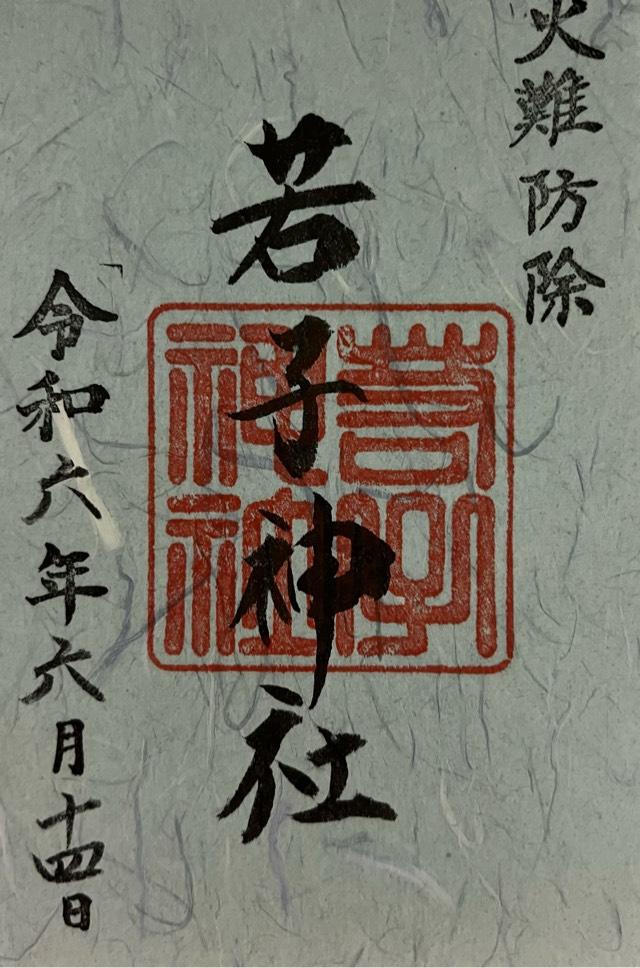 火難防除
若子神社
若子神社
令和六年六月十四日